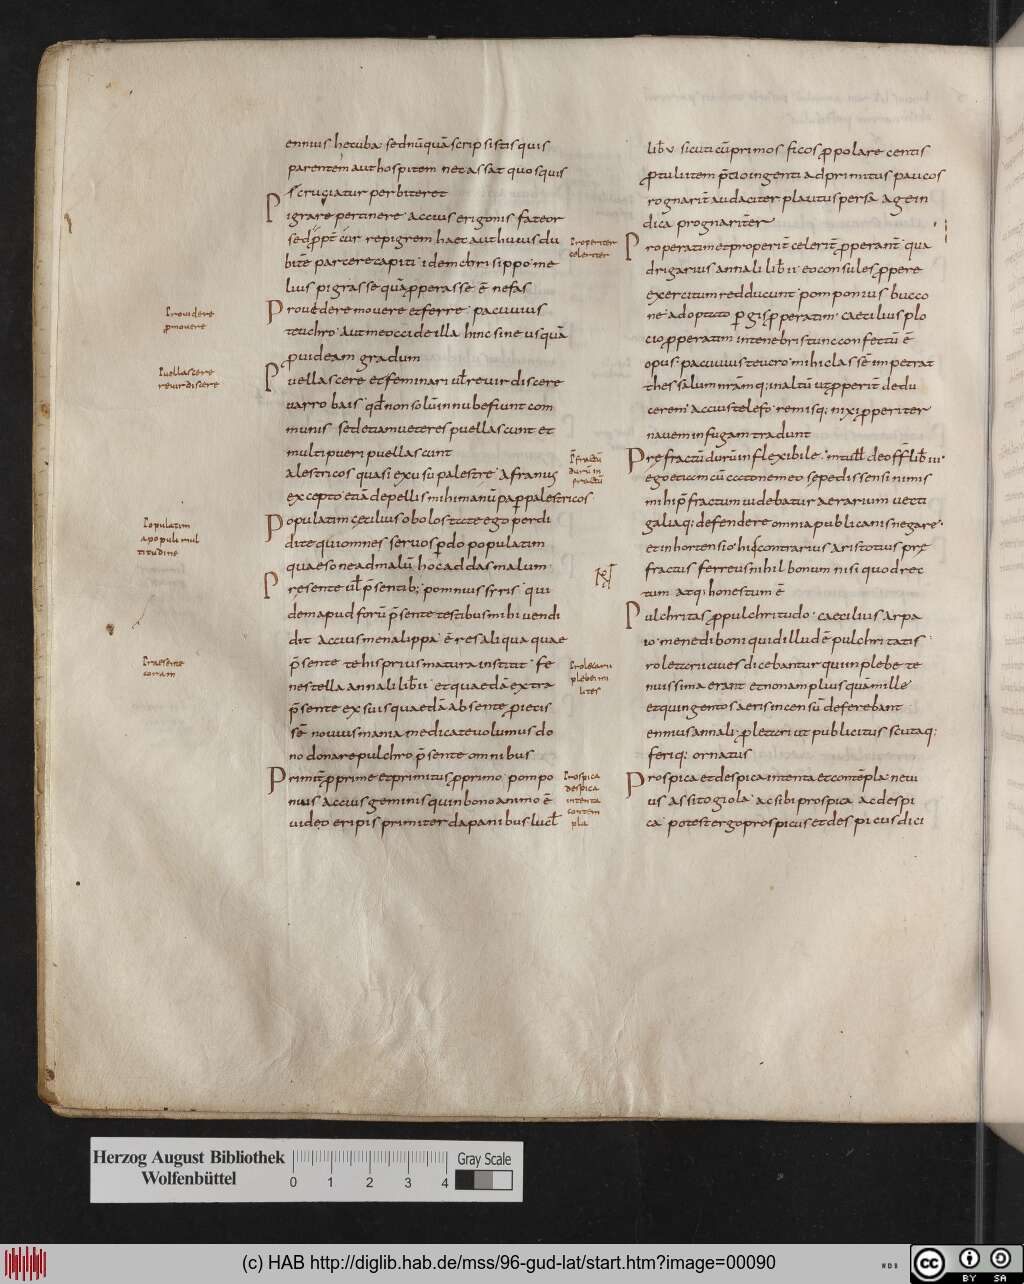 ennius hecuba sed nū quā scripsistis quis
parentem aut hospitem necassat quos quis
scruciatur perbiteret
Pigrare pertinere accius erigonis fateor
sed ꝓpt cur repigrem haec aut huius du
bitē parcere capiti idem cbrisippo me
lius pigrasse quā ꝓperasse ē nefas
Prouedere mouere et ferre pacuuius
teuchro aut me occide illa hinc sine usquā
ꝓuideam gradum
Puellascere et feminari uł reuirdiscere
uarro bais qđ non solū innubę fiunt com
munis sed etiam ueteres puellascunt et
multi pueri puellascunt
alestricos quasi exusu palestre afranius
excepto etiā depellis mihi manū paꝑ palestricos
Populatim cęcilius obolostate ego perdi
dite qui omnes seruos ꝑdo populatim
quaeso ne ad malū hoc addas malum
Presente uł p̄sentib; pomnius syris qui
dem apud forū p̄sente testibus mihi uendi
dit accius menalippa ē res aliqua quae
p̄sente te his prius matura institit fe
nestella annali lib ii et quaedā extra
p̄sente ex suis quaedā absente ꝓietis
sē nouius mania medica te uolumus do
no donare pulchro p̄sente omnibus
Primit ꝓ prime et primitus ꝓ primo pompo
nius accius geminis quin bono animo ē
uideo eripis primiter dapanibus lucł
Prouidere
ꝓmouere
Puellascere
reuirdiscere
Populatim
a populi mul
titudine
Praesente
coram
lib v sicuti cū primos ficos ꝓpolare centis
ꝓtuli item p̄tio ingenti ad primitus paucos
rognarit audaciter plautus persa age in
dica prognariter
Properatim et properit celerit ꝓperant qua
drigarius annali lib ii eo consules ꝓpere
exercitum redducunt pomponius bucco
ne adoptato ꝑgis ꝓperatim caecilius plo
cio ꝓperatim in tenebris tunc confectū ē
opus pacuuius teucro mihi classē impetrat
thessalum nrām q; in altū ut ꝓperit dedu
cerem accius telefo remisq; nixi ꝓperiter
nauem in fugam tradunt
Prefractū durū inflexibile m tuł de off lib iii
ego etiam cū catone meo sepe dissensi nimis
mihi p̄fractum uidebatur aerarium uecti
galiaq; defendere omnia publicanis negare
et in hortensio hic contrarius aristotius pre
fractus ferreus nihil bonum nisi quod rec
tum atq; honestum ē
Pulchritas ꝓ pulchritudo caecilius arpa
io menedi boni quid illud ē pulchritatis
roletarii ciues dicebantur qui in plebe te
nuissima erant et non amplius quā mille
et quingentos aeris in censū deferebant
ennius annali ꝓletari ut publicitus scutaq;
feriq; ornatus
Prospica et despica intenta et contēpla neui
us assitogiola ac sibi prospica ac despi
ca potest ergo prospicus et despicus dici
Properiter
celeriter
Pfractū
durū in
fractū
Proletarii
plebei mi
lites
Prospica
despica
intenta
contem
pla
Herzog August Bibliothek
Wolfenbüttel
0 1 2 3 4
Gray Scale
(c) HAB http://diglib.hab.de/mss/96-gud-lat/start.htm?image=00090
WDB
cc
BY SA